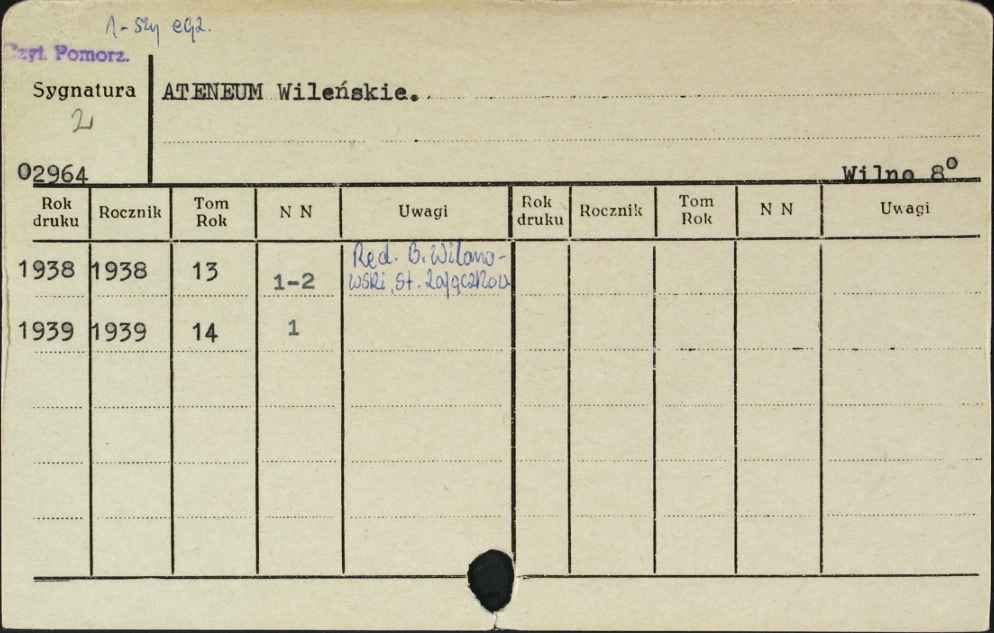 1-szy egz.
Czyt. Pomorz.
Sygnatura ATENEUM Wileńskie.
2
02964 Wilno 8°
Rok druku Rocznik Tom Rok N N Uwagi Rok druku Rocznik Tom Rok N N Uwagi
1938 1938 13 1-2 Red. B. Wilano-
wski, St. Zajączkow
1939 1939 14 1